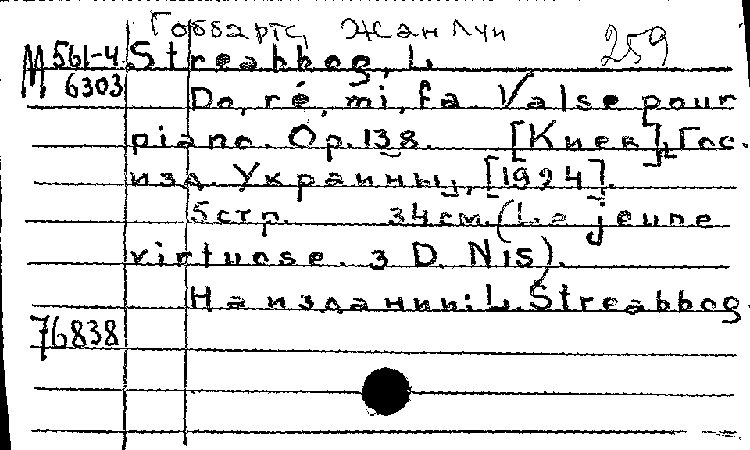 Гоббартс, Жан Луи
259
М 561-4 Streabbog, L.
6303 Do, ré, mi, fa. Valse pour
piano. Op. 138. [Киев], Гос.
изд. Украины, [1924].
5 стр. 34 см. (Le jeune
virtuose. 3 D. Nis).
На издании: L. Streabbog.
76838